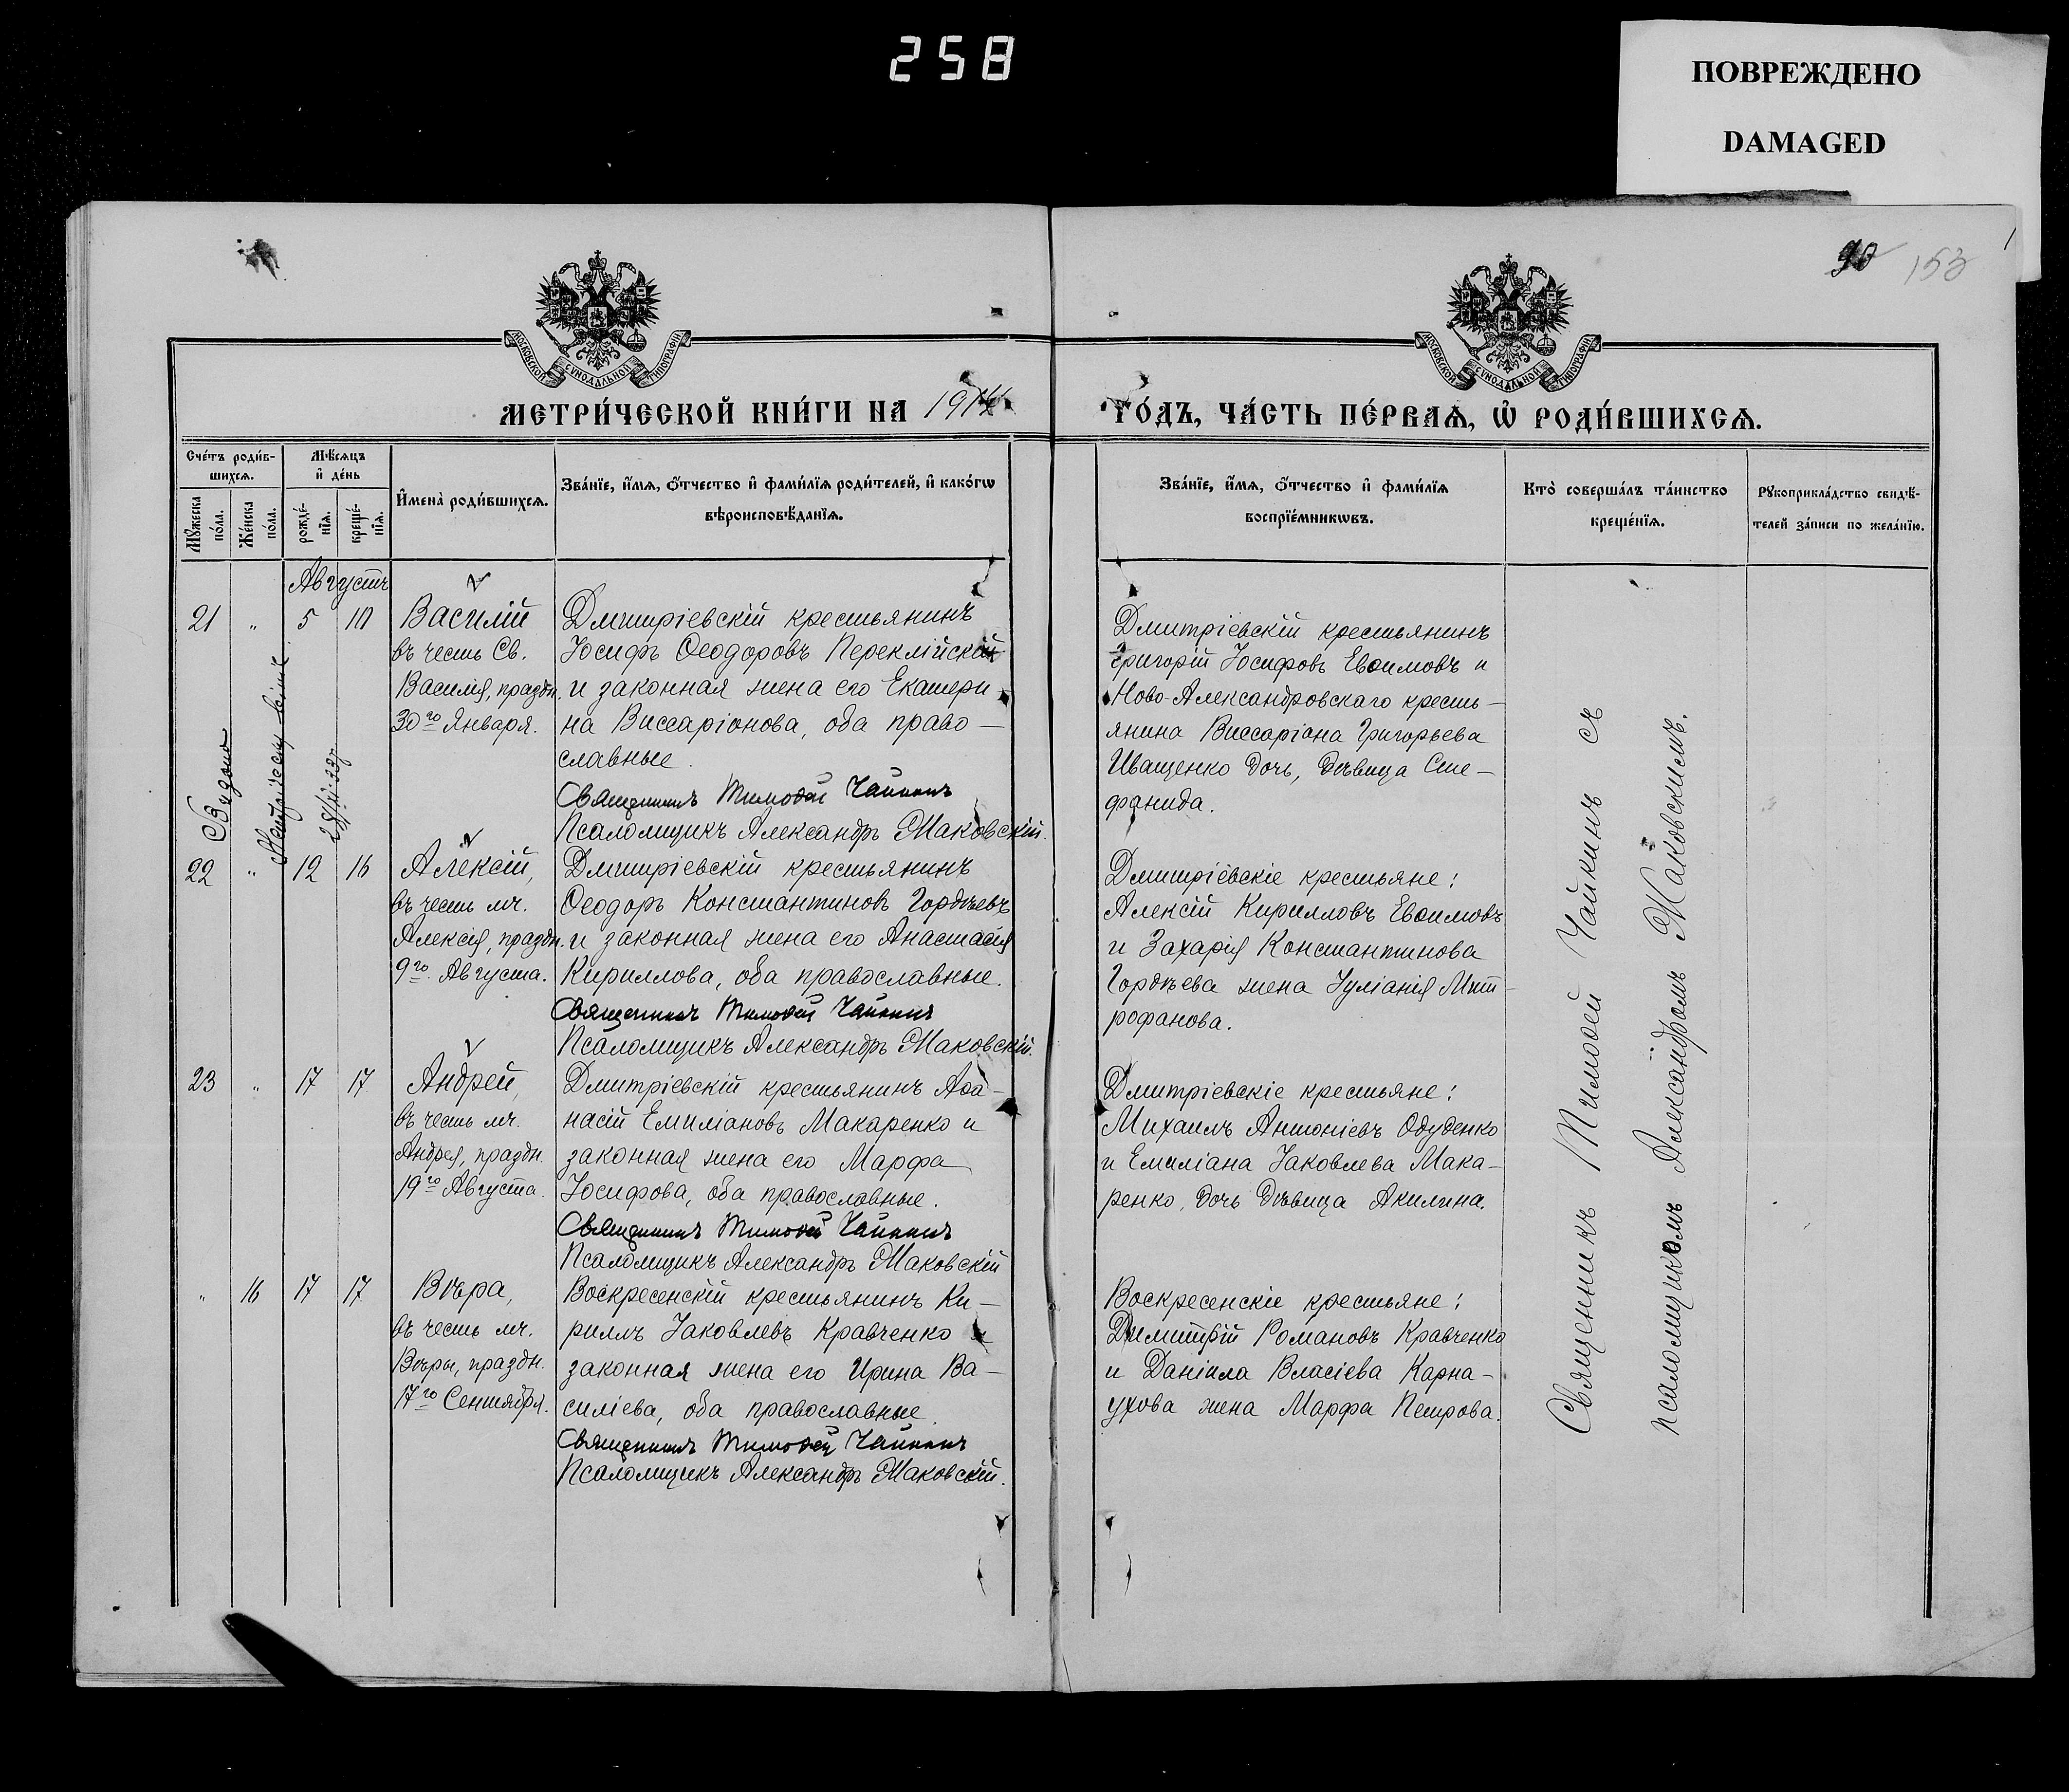 258
ПОВРЕЖДЕНО
DAMAGED
90 153
МОСКОВСКОЙ СѴНОДАЛЬНОЙ ТИПОГРАФІИ
МОСКОВСКОЙ СѴНОДАЛЬНОЙ ТИПОГРАФІИ
МЕТРИ́ЧЕСКОЙ КНИ́ГИ НА 1914
ГО́ДЪ, ЧА́СТЬ ПЕ́РВАѦ, Ѡ҆ РОДИ́ВШИХСѦ.
Сче́тъ роди́в-
шихсѧ.
Мꙋ́жеска по́ла.
Же́нска по́ла.
Мѣ́сѧцъ
и҆ де́нь
рожде́-
нїѧ.
креще́-
нїѧ.
И҆мена̀ роди́вшихсѧ.
Зва́нїе, и҆́мѧ, ѻ҆́тчество и҆ фами́лїѧ роди́телей, и҆ како́гѡ
вѣроисповѣ́данїѧ.
Зва́нїе, и҆́мѧ, ѻ҆́тчество и҆ фами́лїѧ
воспрїе́мникѡвъ.
Кто̀ соверша́лъ та́инство
креще́нїѧ.
Рꙋкоприкла́дство свидѣ́-
телей за́писи по жела́нїю.
Августъ
21 " 5 10 Василій
въ честь Св.
Василія, праздн.
30го Января.
Дмитріевскій крестьянинъ
Іосифъ Ѳеодоровъ Переклійскій
и законная жена его Екатери-
на Виссаріонова, оба право-
славные.
Священникъ Тимоѳей Чайкинъ
Псаломщикъ Александръ Маковскій.
Дмитріевскій крестьянинъ
Григорій Іосифовъ Евѳимовъ и
Ново-Александровскаго кресть-
янина Виссаріона Григорьева
Иващенко дочь, дѣвица Сте-
фанида.
22 " 12 16 Алексій,
въ честь мч.
Алексія, праздн.
9го Августа.
Дмитріевскій крестьянинъ
Ѳеодоръ Константиновъ Гордѣевъ
и законная жена его Анастасія
Кириллова, оба православные.
Священникъ Тимоѳей Чайкинъ
Псаломщикъ Александръ Маковскій.
Дмитріевскіе крестьяне:
Алексій Кирилловъ Евѳимовъ
и Захарія Константинова
Гордѣева жена Іуліанія Мит-
рофанова.
23 " 17 17 Андрей,
въ честь мч.
Андрея, праздн.
19го Августа.
Дмитріевскій крестьянинъ Аѳа-
насій Емиліановъ Макаренко и
законная жена его Марфа
Іосифова, оба православные.
Священникъ Тимоѳей Чайкинъ
Псаломщикъ Александръ Маковскій
Дмитріевскіе крестьяне:
Михаилъ Антоніевъ Одуденко
и Емиліана Іаковлева Мака-
ренко, дочь дѣвица Акилина.
" 16 17 17 Вѣра,
въ честь мч.
Вѣры, праздн.
17го Сентября.
Воскресенскій крестьянинъ Ки-
риллъ Іаковлевъ Кравченко и
законная жена его Ирина Ва-
силіева, оба православные.
Священникъ Тимоѳей Чайкинъ
Псаломщикъ Александръ Маковскій.
Воскресенскіе крестьяне:
Димитрій Романовъ Кравченко
и Даніила Власіева Карна-
ухова жена Марфа Петрова.
Священникъ Тимоѳей Чайкинъ съ
псаломщикомъ Александромъ Маковскимъ.